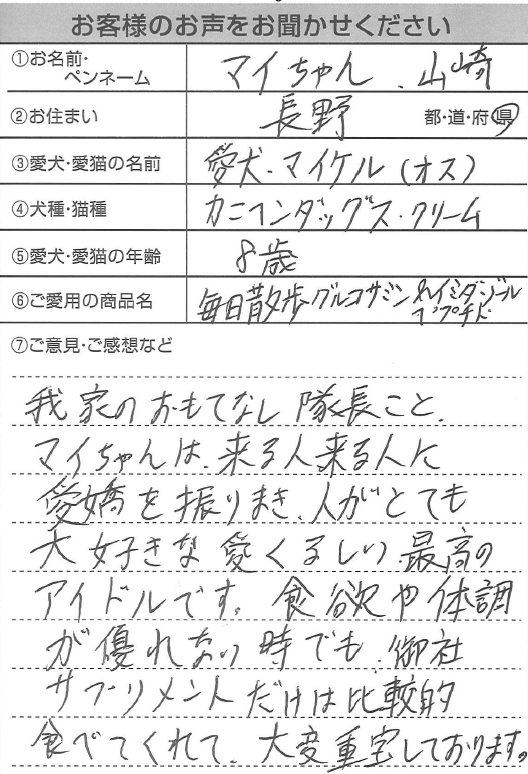 お客様のお声をお聞かせください
①お名前・ペンネーム マイちゃん、山崎
②お住まい 長野 都・道・府・県
③愛犬・愛猫の名前 愛犬・マイケル(オス)
④犬種・猫種 カニヘンダックス・クリーム
⑤愛犬・愛猫の年齢 8歳
⑥ご愛用の商品名 毎日散歩・グルコサミン &イミダゾール
ペプチド
⑦ご意見・ご感想など
我家のおもてなし隊長こと、
マイちゃんは、来る人来る人に
愛嬌を振りまき、人がとても
大好きな愛くるしい最高の
アイドルです。食欲や体調
が優れない時でも、御社
サプリメントだけは比較的
食べてくれて、大変重宝しております。